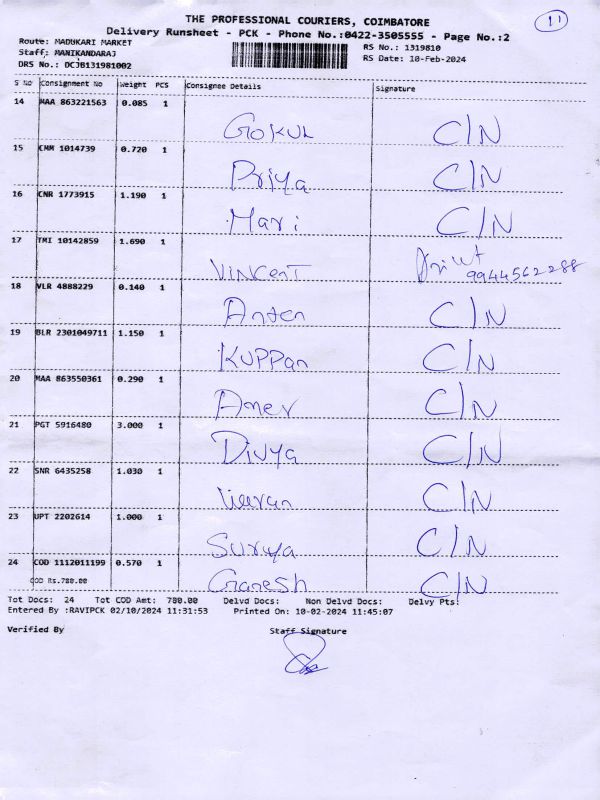 11
THE PROFESSIONAL COURIERS, COIMBATORE
Delivery Runsheet - PCK - Phone No.:0422-3505555 - Page No.:2
Route: MADUKARI MARKET RS No.: 1319810
Staff: MANIKANDARAJ RS Date: 10-Feb-2024
DRS No.: DCJB131981002
S No Consignment No Weight PCS Consignee Details Signature
14 MAA 863221563 0.085 1 Gokul C/N
15 CMM 1014739 0.720 1 Priya C/N
16 CNR 1773915 1.190 1 Mari C/N
17 TMI 10142859 1.690 1 VINCENT 9944562288
18 VLR 4888229 0.140 1 Anten C/N
19 BLR 2301049711 1.150 1 KUPPan C/N
20 MAA 863550361 0.290 1 C/N
21 PGT 5916480 3.000 1 Divya C/N
22 SNR 6435258 1.030 1 C/N
23 UPT 2202614 1.000 1 Surya C/N
24 COD 1112011199 0.570 1 Ganesh C/N
COD Rs.780.00
Tot Docs: 24 Tot COD Amt: 780.00 Delvd Docs: Non Delvd Docs: Delvy Pts:
Entered By :RAVIPCK 02/10/2024 11:31:53 Printed On: 10-02-2024 11:45:07
Verified By Staff Signature